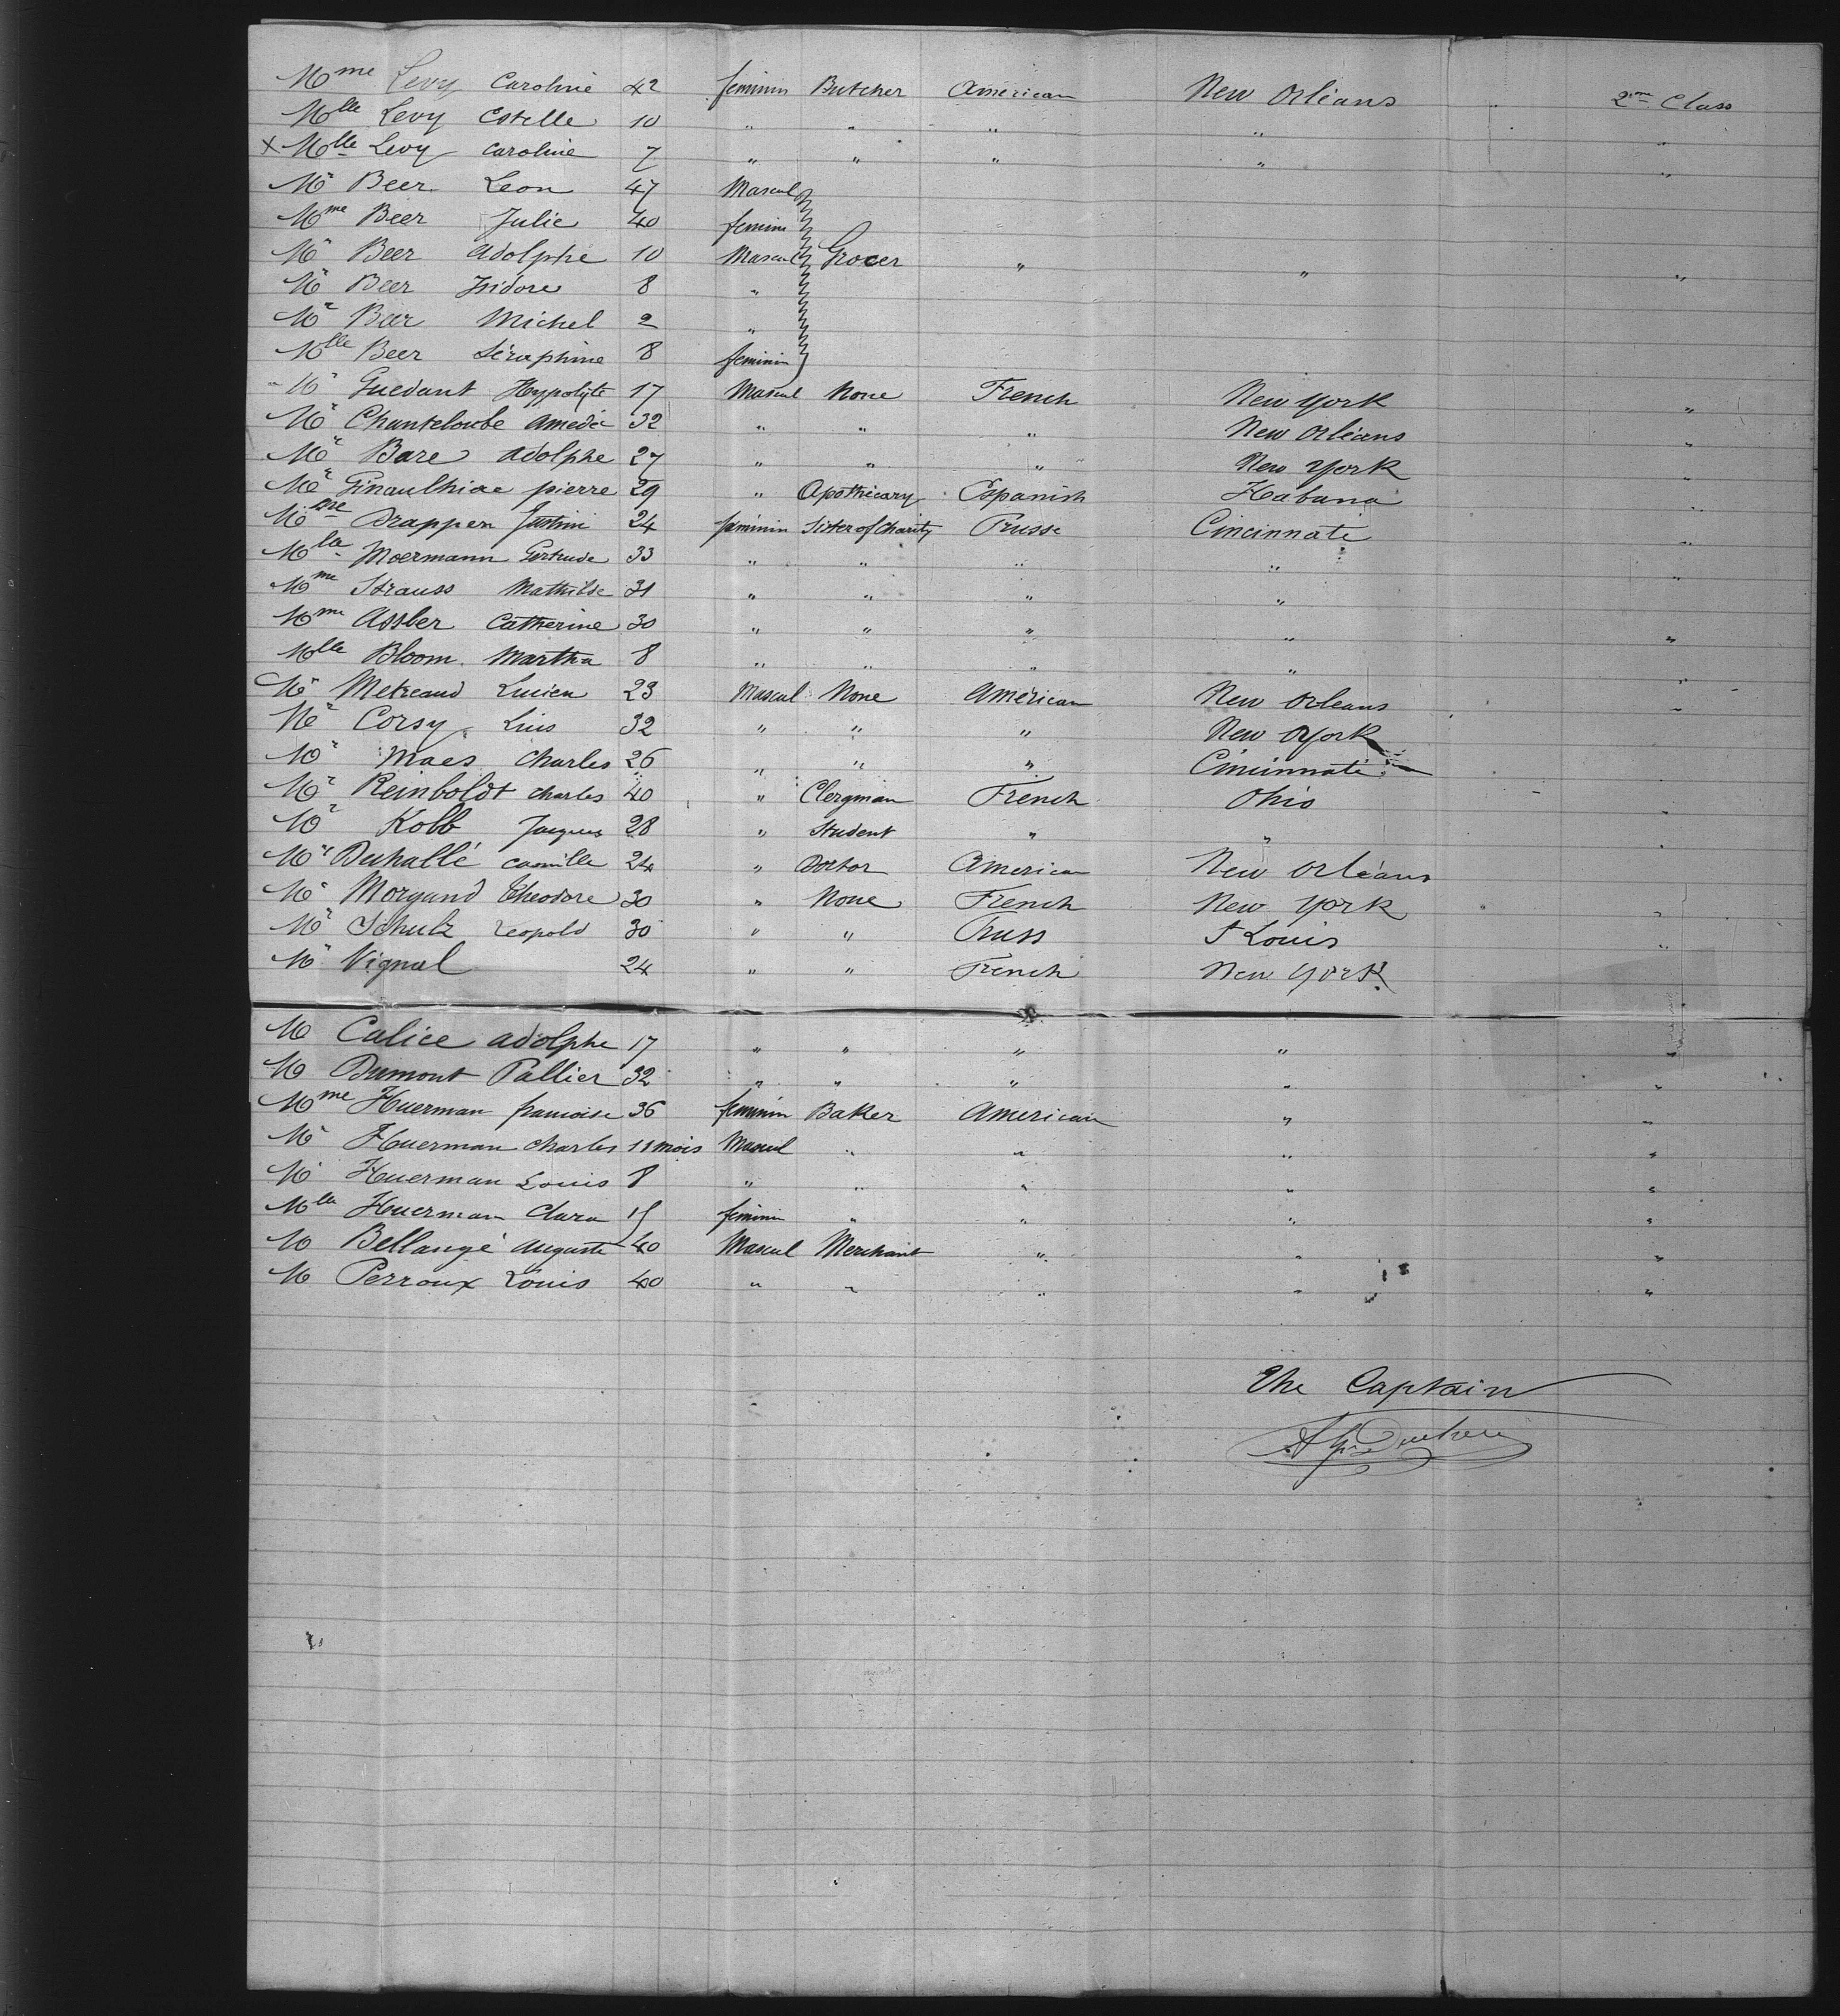 Mme Levy Caroline 42 feminin Butcher American New Orléans 2me Class
Mlle Levy Estelle 10 " " " " "
x Mlle Levy Caroline 7 " " " " "
Mr Beer Leon 47 Mascul
Mme Beer Julie 40 feminin
Mr Beer Adolphe 10 Mascul Grocer " " "
Mr Beer Isidore 8 "
Mr Beer Michel 2 "
Mlle Beer Séraphine 8 feminin
Mr Guedant Hypolyte 17 Mascul None French New York "
Mr Chanteloube Amedé 32 " " " New Orléans "
Mr Bare Adolphe 27 " " " New York "
Mr Ginaulhiac pierre 29 " Apothicary Espanish Habana "
Mme Drapper Justini 24 féminin Sister of Charity Prusse Cincinnati "
Mlle Moermann Gertrude 33 " " " " "
Mme Strauss Mathilde 31 " " " "
Mme Assler Catherine 30 " " " " "
Mlle Bloom Martha 8 " " " " "
Mr Metreaud Lucien 23 Mascul None American New Orleans "
Mr Corsy Luis 32 " " " New York
Mr Maes Charles 26 " " " Cincinnati
Mr Reinboldt Charles 40 " Clergman French Ohio "
Mr Kobb Jacques 28 " Student " " "
Mr Duhallé Camille 24 " Doctor American New Orléans
Mr Morgand Theodore 30 " None French New York "
Mr Schulz Leopold 30 " " Pruss St Louis "
Mr Vignal 24 " " French New York
M Calice Adolphe 17 " " " " "
M Dumont Pallier 32 " " " " "
Mme Huerman francoise 36 feminin Baker American " "
Mr Huerman Charles 11 mois Mascul " " " "
M Huerman Louis 8 " " " " "
Mlle Huerman Clara feminin " " " "
M Bellangé Auguste 40 Mascul Merchant " " "
M Perroux Louis 40 " " " " "
The Captain